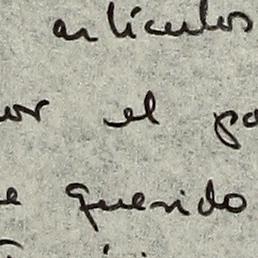 artículos
or el pa
e querido